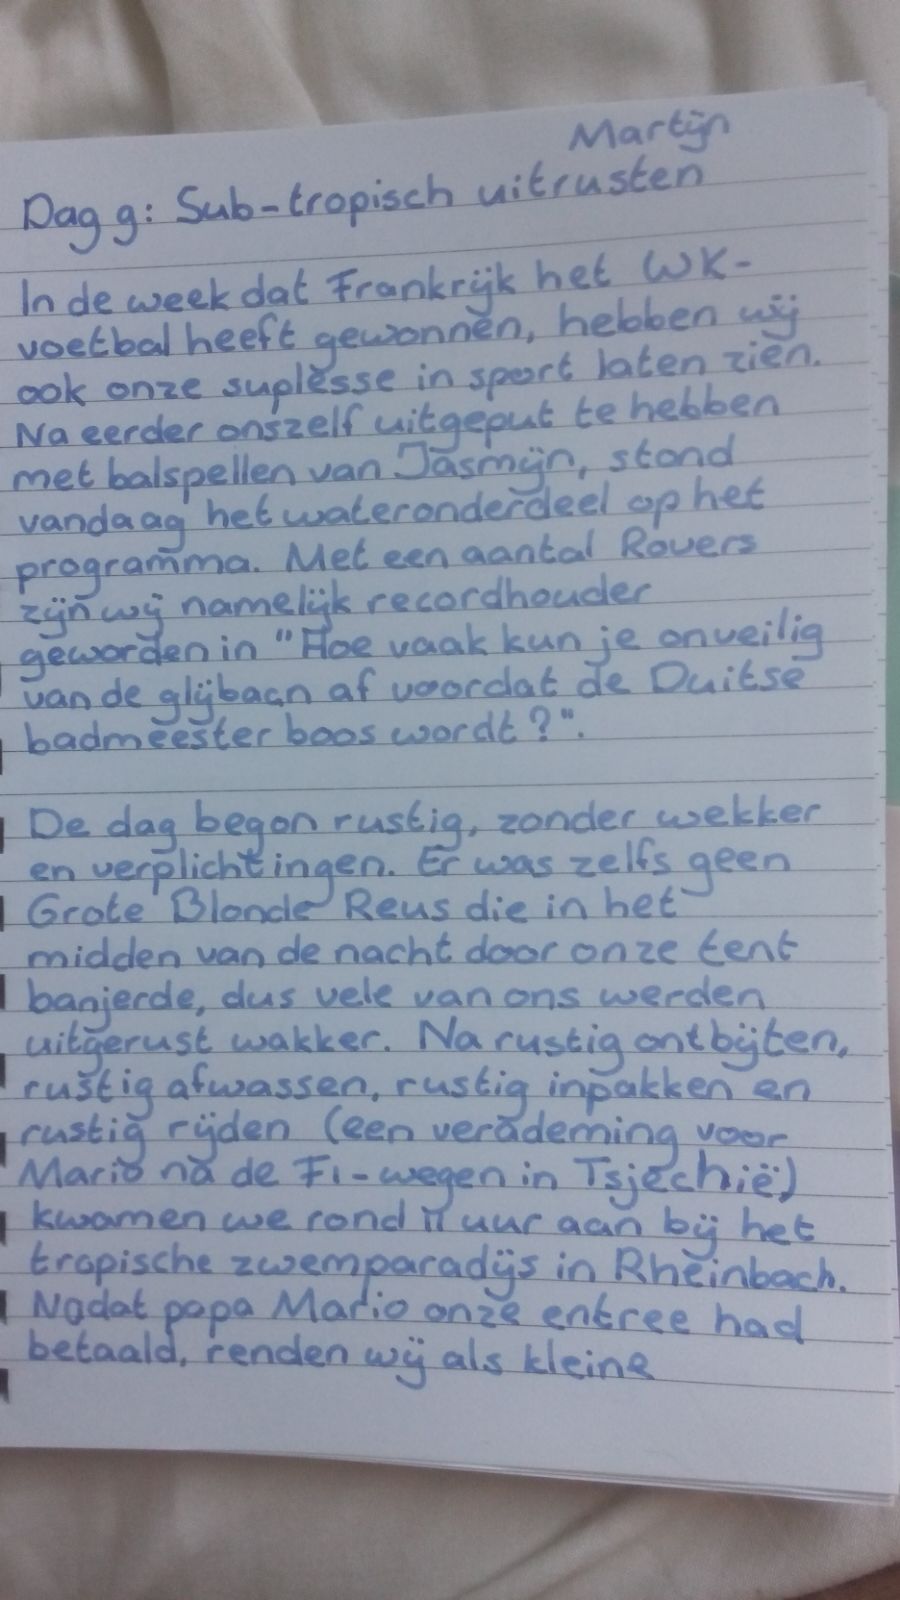 Martijn
Dag 9: Sub-tropisch uitrusten
In de week dat Frankrijk het WK-
voetbal heeft gewonnen, hebben wij
ook onze suplesse in sport laten zien.
Na eerder onszelf uitgeput te hebben
met balspellen van Jasmijn, stond
vandaag het wateronderdeel op het
programma. Met een aantal Rovers
zijn wij namelijk recordhouder
geworden in "Hoe vaak kun je onveilig
van de glijbaan af voordat de Duitse
badmeester boos wordt?".
De dag begon rustig, zonder wekker
en verplichtingen. Er was zelfs geen
Grote Blonde Reus die in het
midden van de nacht door onze tent
banjerde, dus vele van ons werden
uitgerust wakker. Na rustig ontbijten,
rustig afwassen, rustig inpakken en
rustig rijden (een verademing voor
Mario na de F1-wegen in Tsjechië)
kwamen we rond 11 uur aan bij het
tropische zwemparadijs in Rheinbach.
Nadat papa Mario onze entree had
betaald, renden wij als kleine